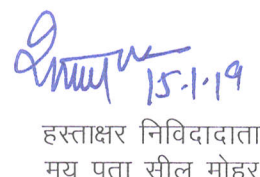 15.1.19
हस्ताक्षर निविदादाता
मय पता सील मोहर